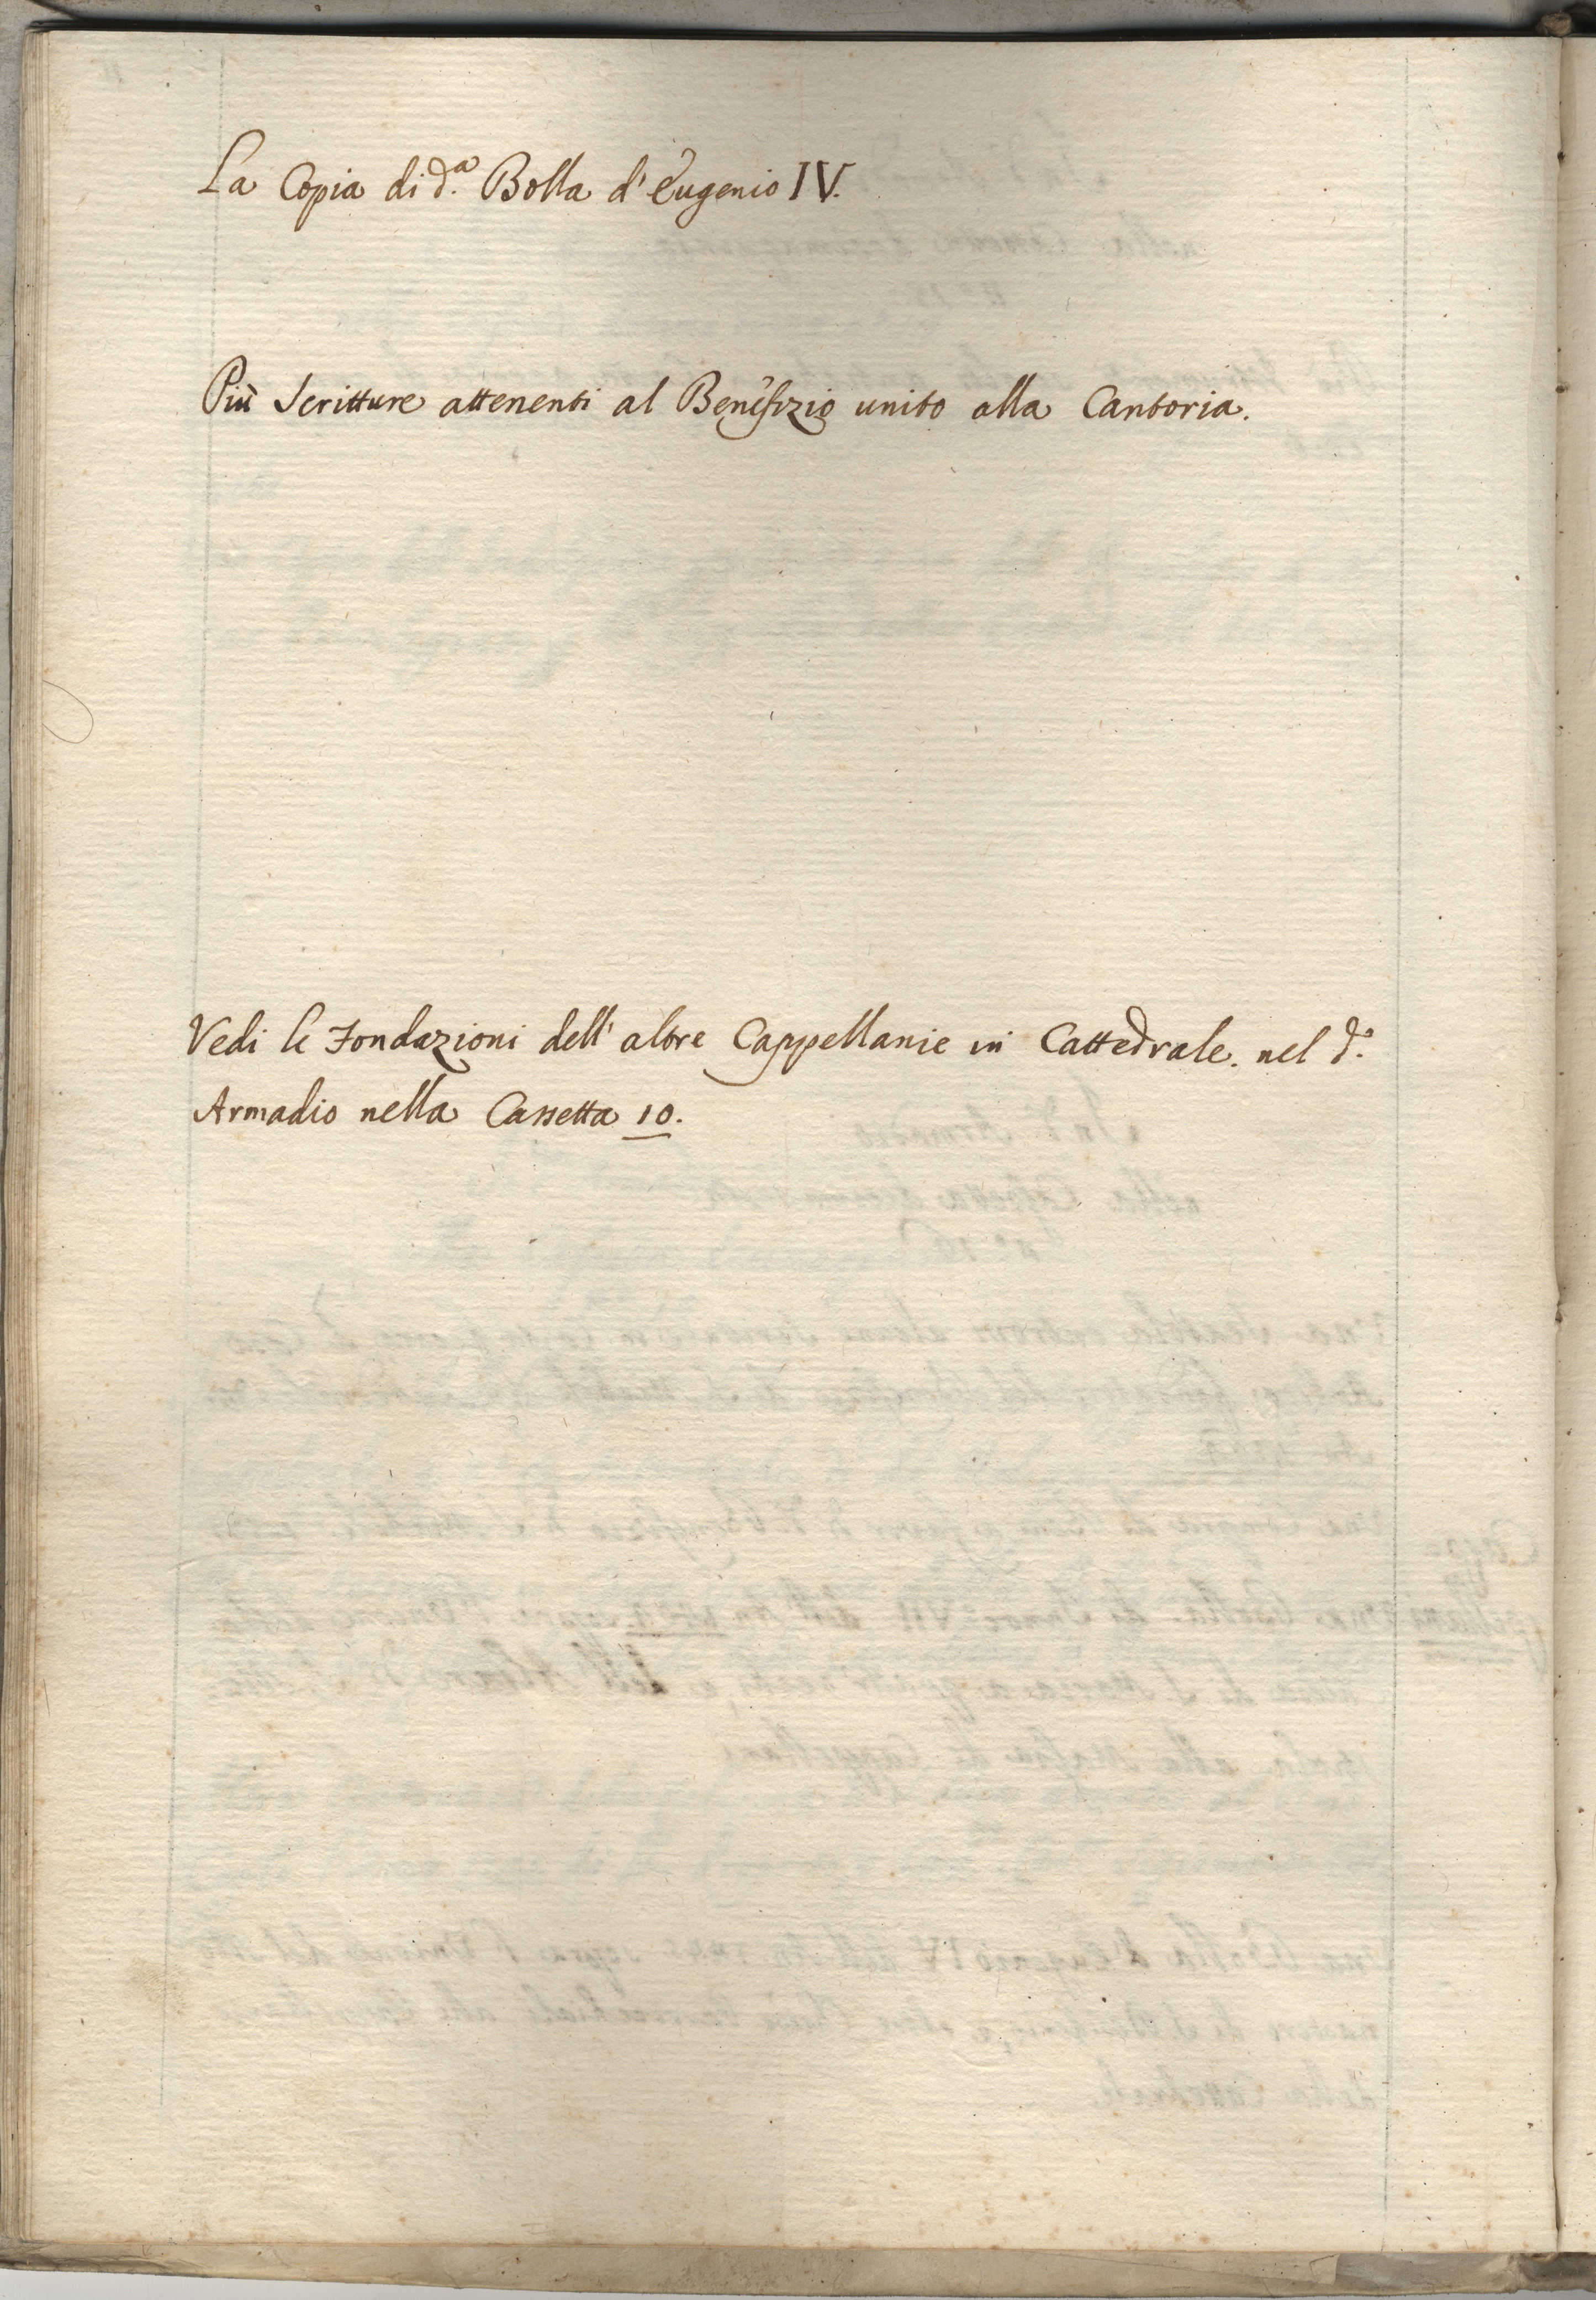 La Copia di d.ª Bolla d'Eugenio IV.
Più Scritture attenenti al Benefizio unito alla Cantoria.
Vedi le Fondazioni dell'altre Cappellanie in Cattedrale. nel d.º
Armadio nella Cassetta 10.